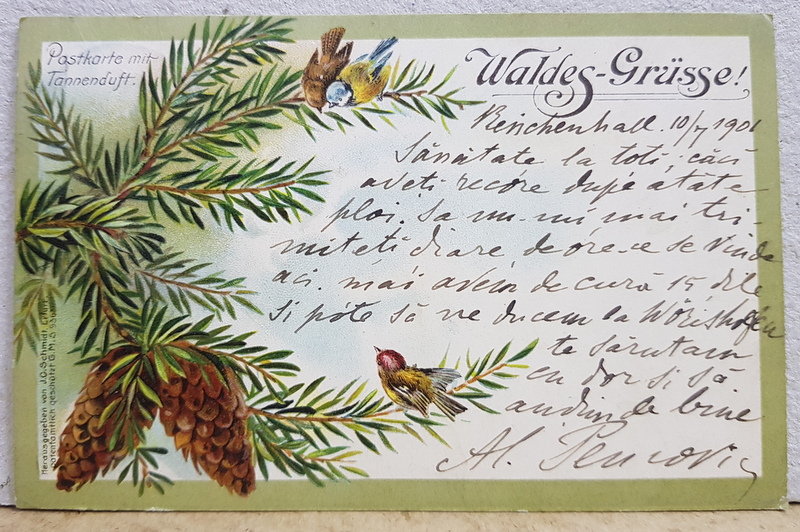 Postkarte mit
Tannenduft.
Waldes-Grüsse!
Reichenhall. 10/7 1901
Sănătate la toti; căci
aveți recóre dupe atăte
ploi. Sa nu-mi mai tri-
miteți diare, de óre-ce se vinde
aci. mai avem de cură 15 dile
si póte să ne ducem la Wörishofen
te sărutam
cu dor si să
audim de bine
Al.
Herausgegeben von J.C. Schmidt, Erfurt.
patentamtlich geschützt G.M.S.